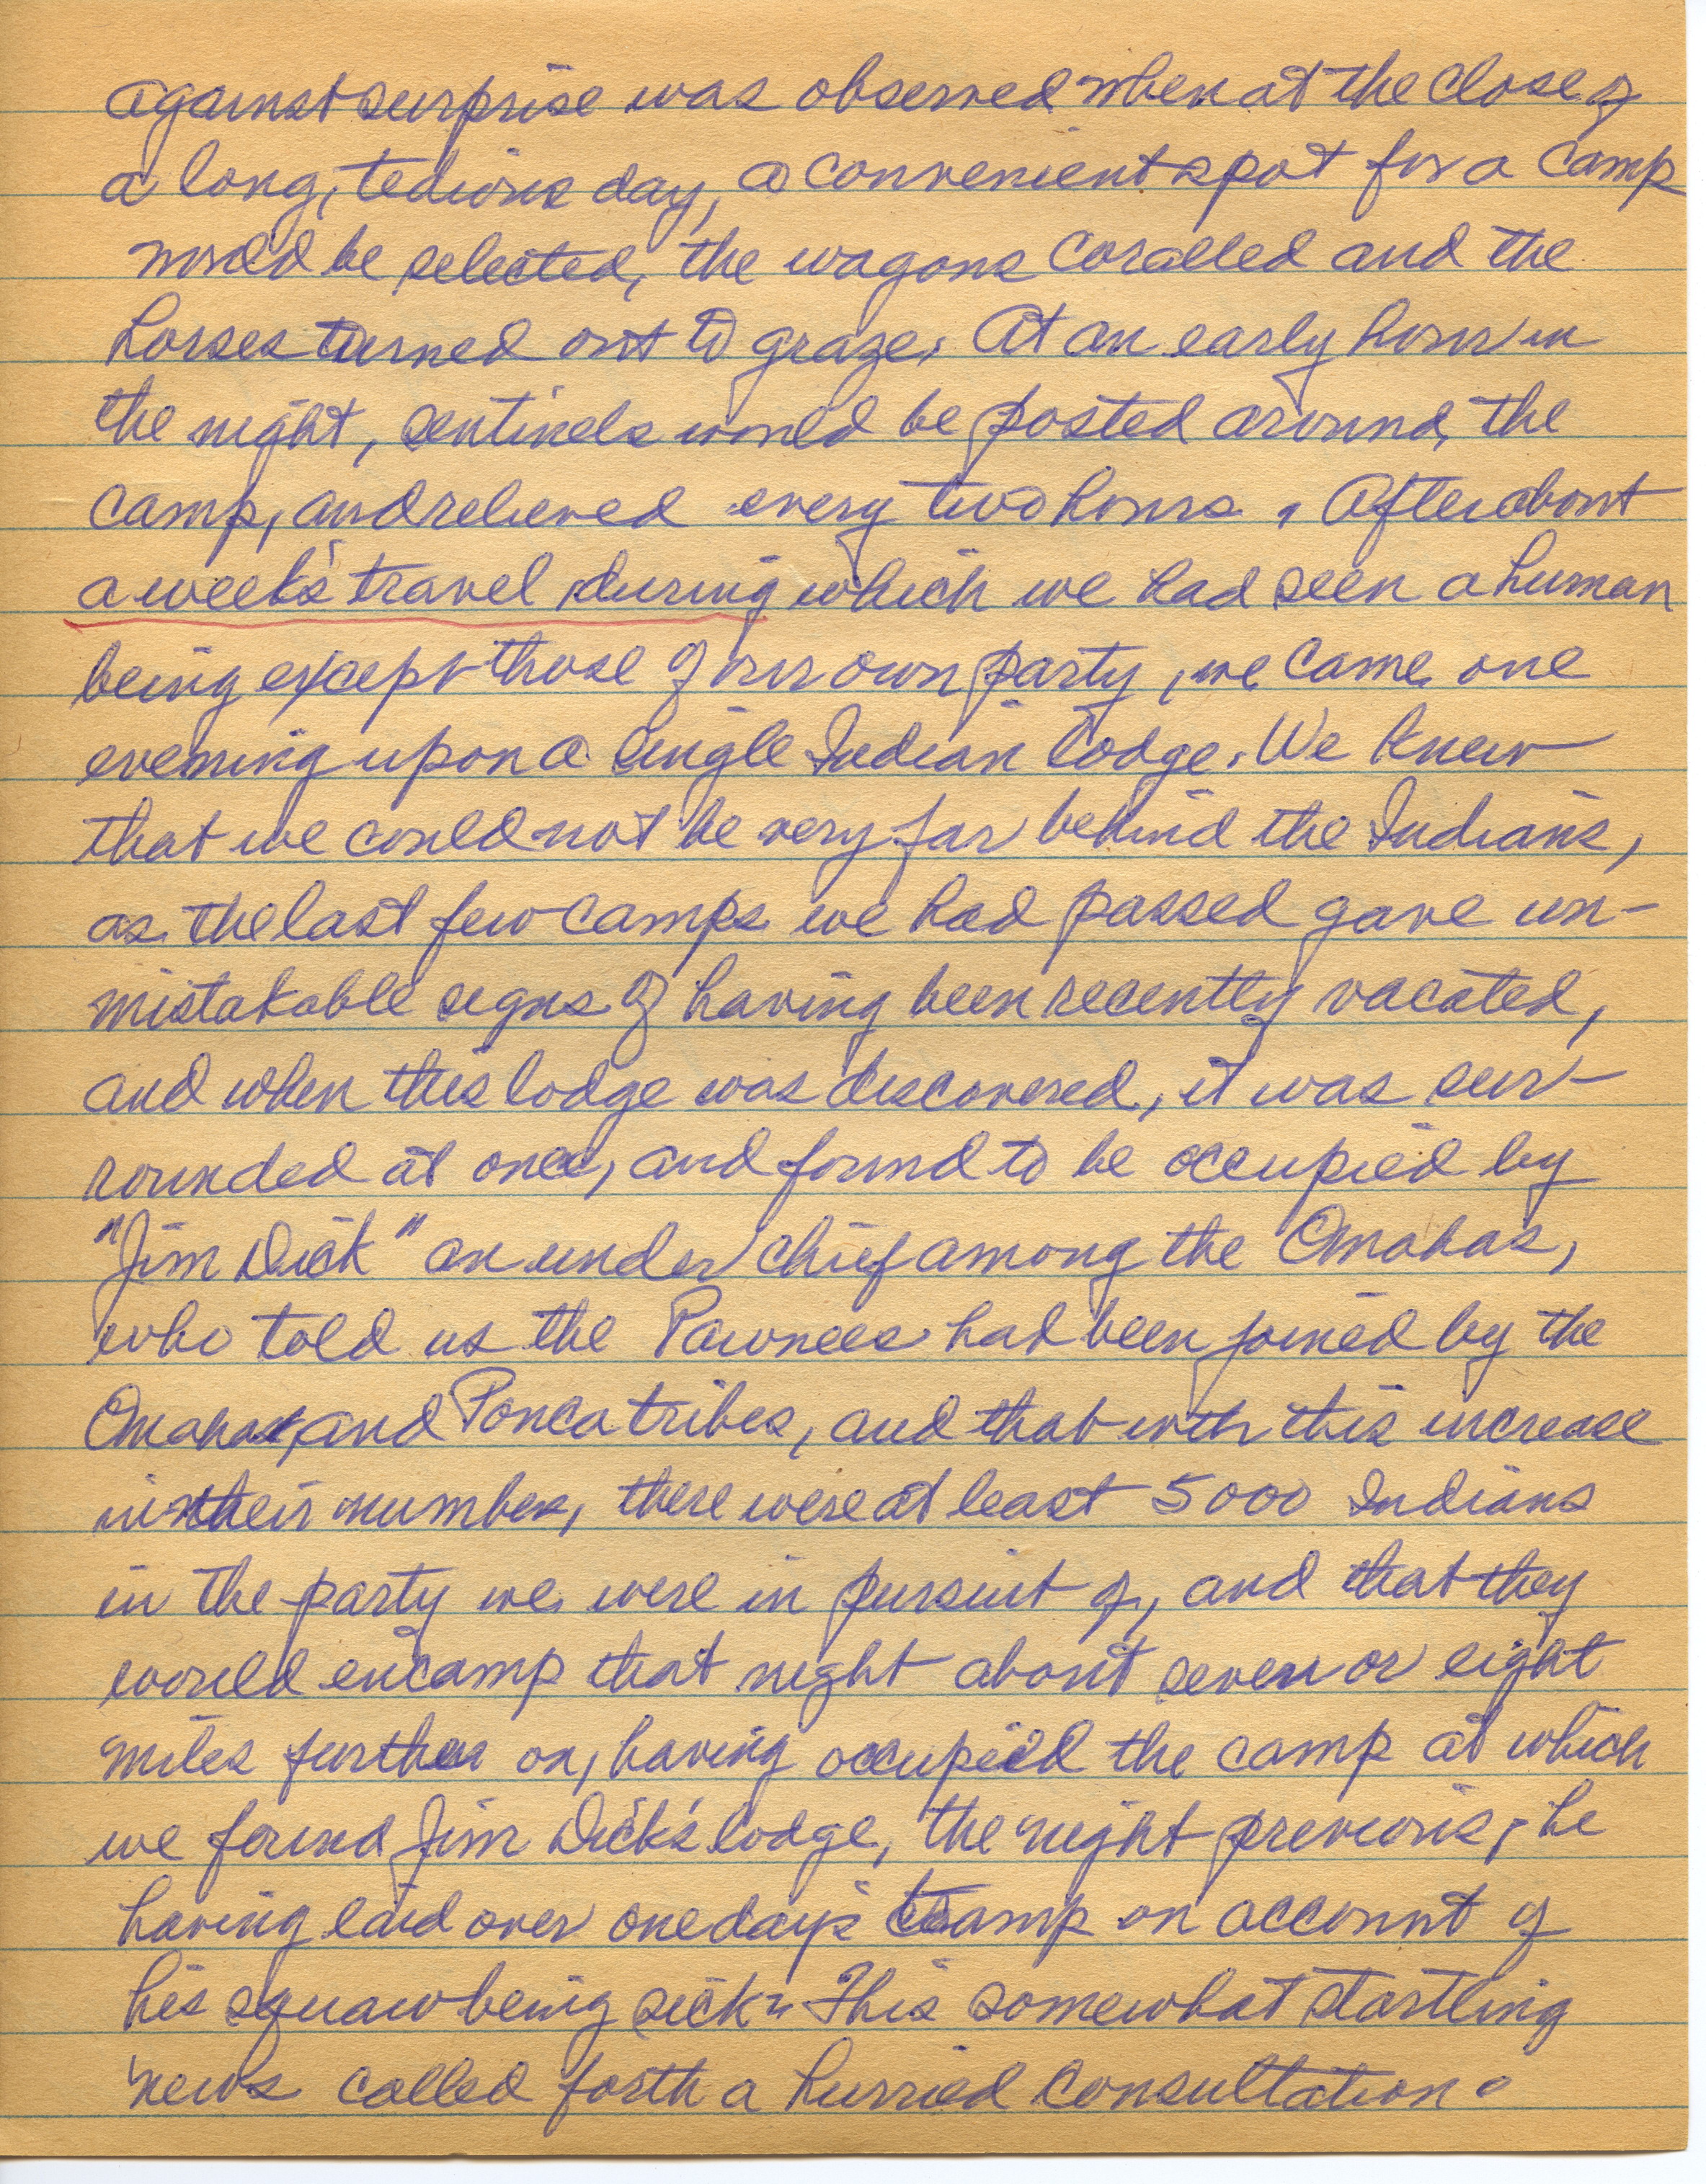 against surprise was observed when at the close of
a long, tedious day, a convenient spot for a camp
would be selected, the wagons coralled and the
horses turned out to graze. At an early hour in
the night, sentinels would be posted around the
camp, and relieved every two hours. After about
a week's travel, during which we had seen a human
being except those of our own party, we came one
evening upon a single Indian lodge. We knew
that we could not be very far behind the Indians,
as the last few camps we had passed gave un-
mistakable signs of having been recently vacated,
and when this lodge was discovered, it was sur-
rounded at once, and found to be occupied by
"Jim Dick" an under chief among the Omahas,
who told us the Pawnees had been joined by the
Omaha and Ponca tribes, and that with this increase
in their number, there were at least 5000 Indians
in the party we were in pursuit of, and that they
would encamp that night about seven or eight
miles further on, having occupied the camp at which
we found Jim Dick's lodge, the night previous, he
having laid over one day's tramp on account of
his squaw being sick. This somewhat startling
news called forth a hurried consultation.